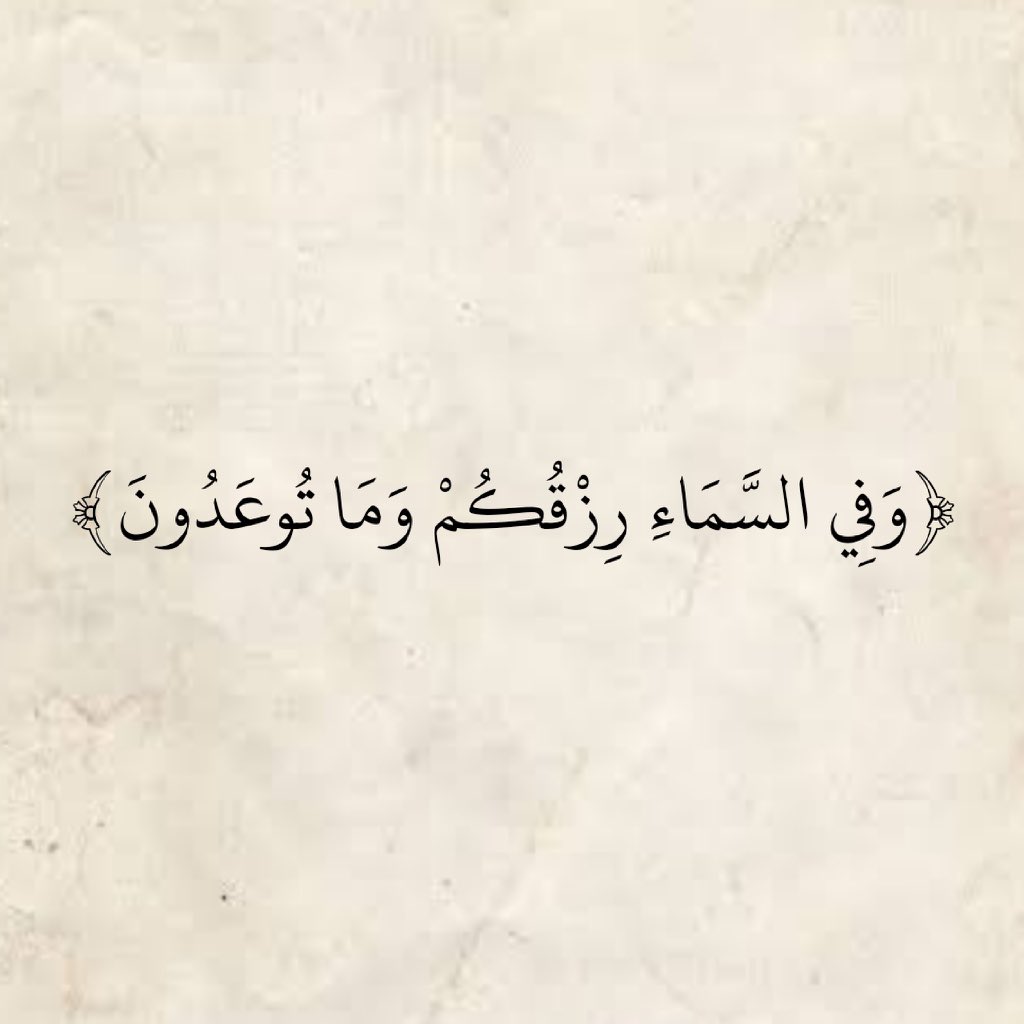 ﴿وَفِي السَّمَاءِ رِزْقُكُمْ وَمَا تُوعَدُونَ﴾